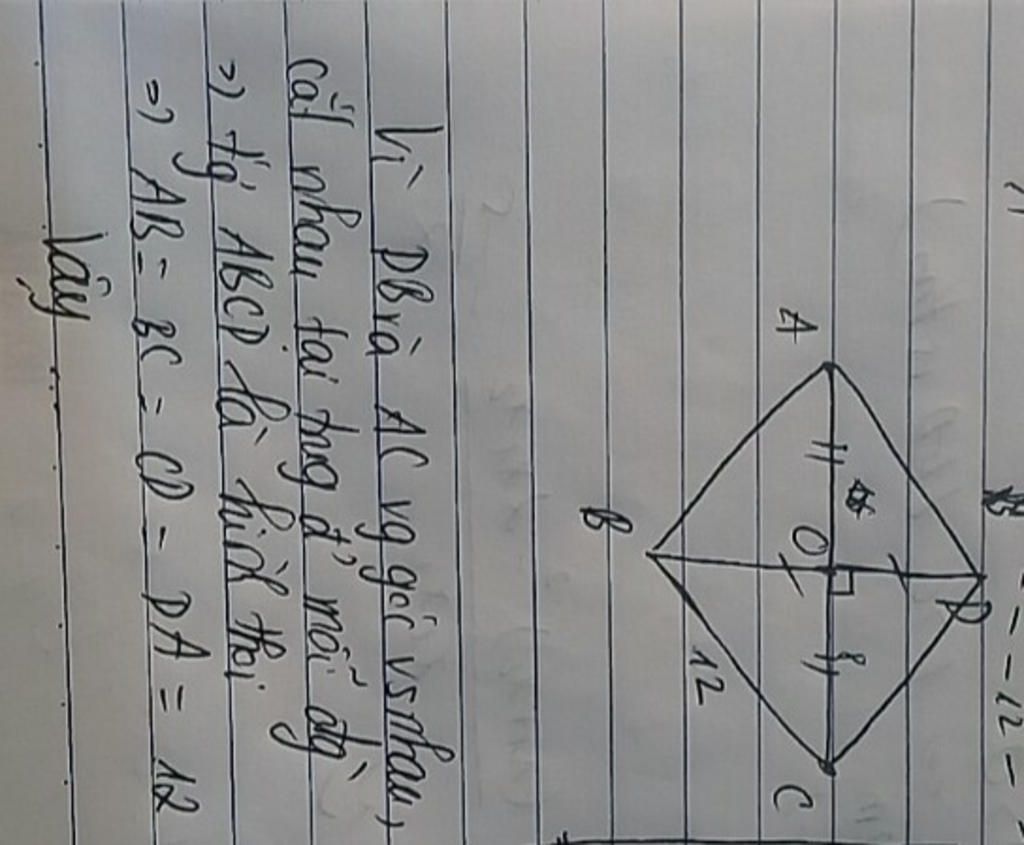 - - 12 -
A
D
O
8
B
12
C
Vì DB và AC vg góc vs nhau,
cắt nhau tại trug đ' mỗi đg`
=> tg' ABCD là hình thoi
=> AB = BC = CD = DA = 12
Vậy